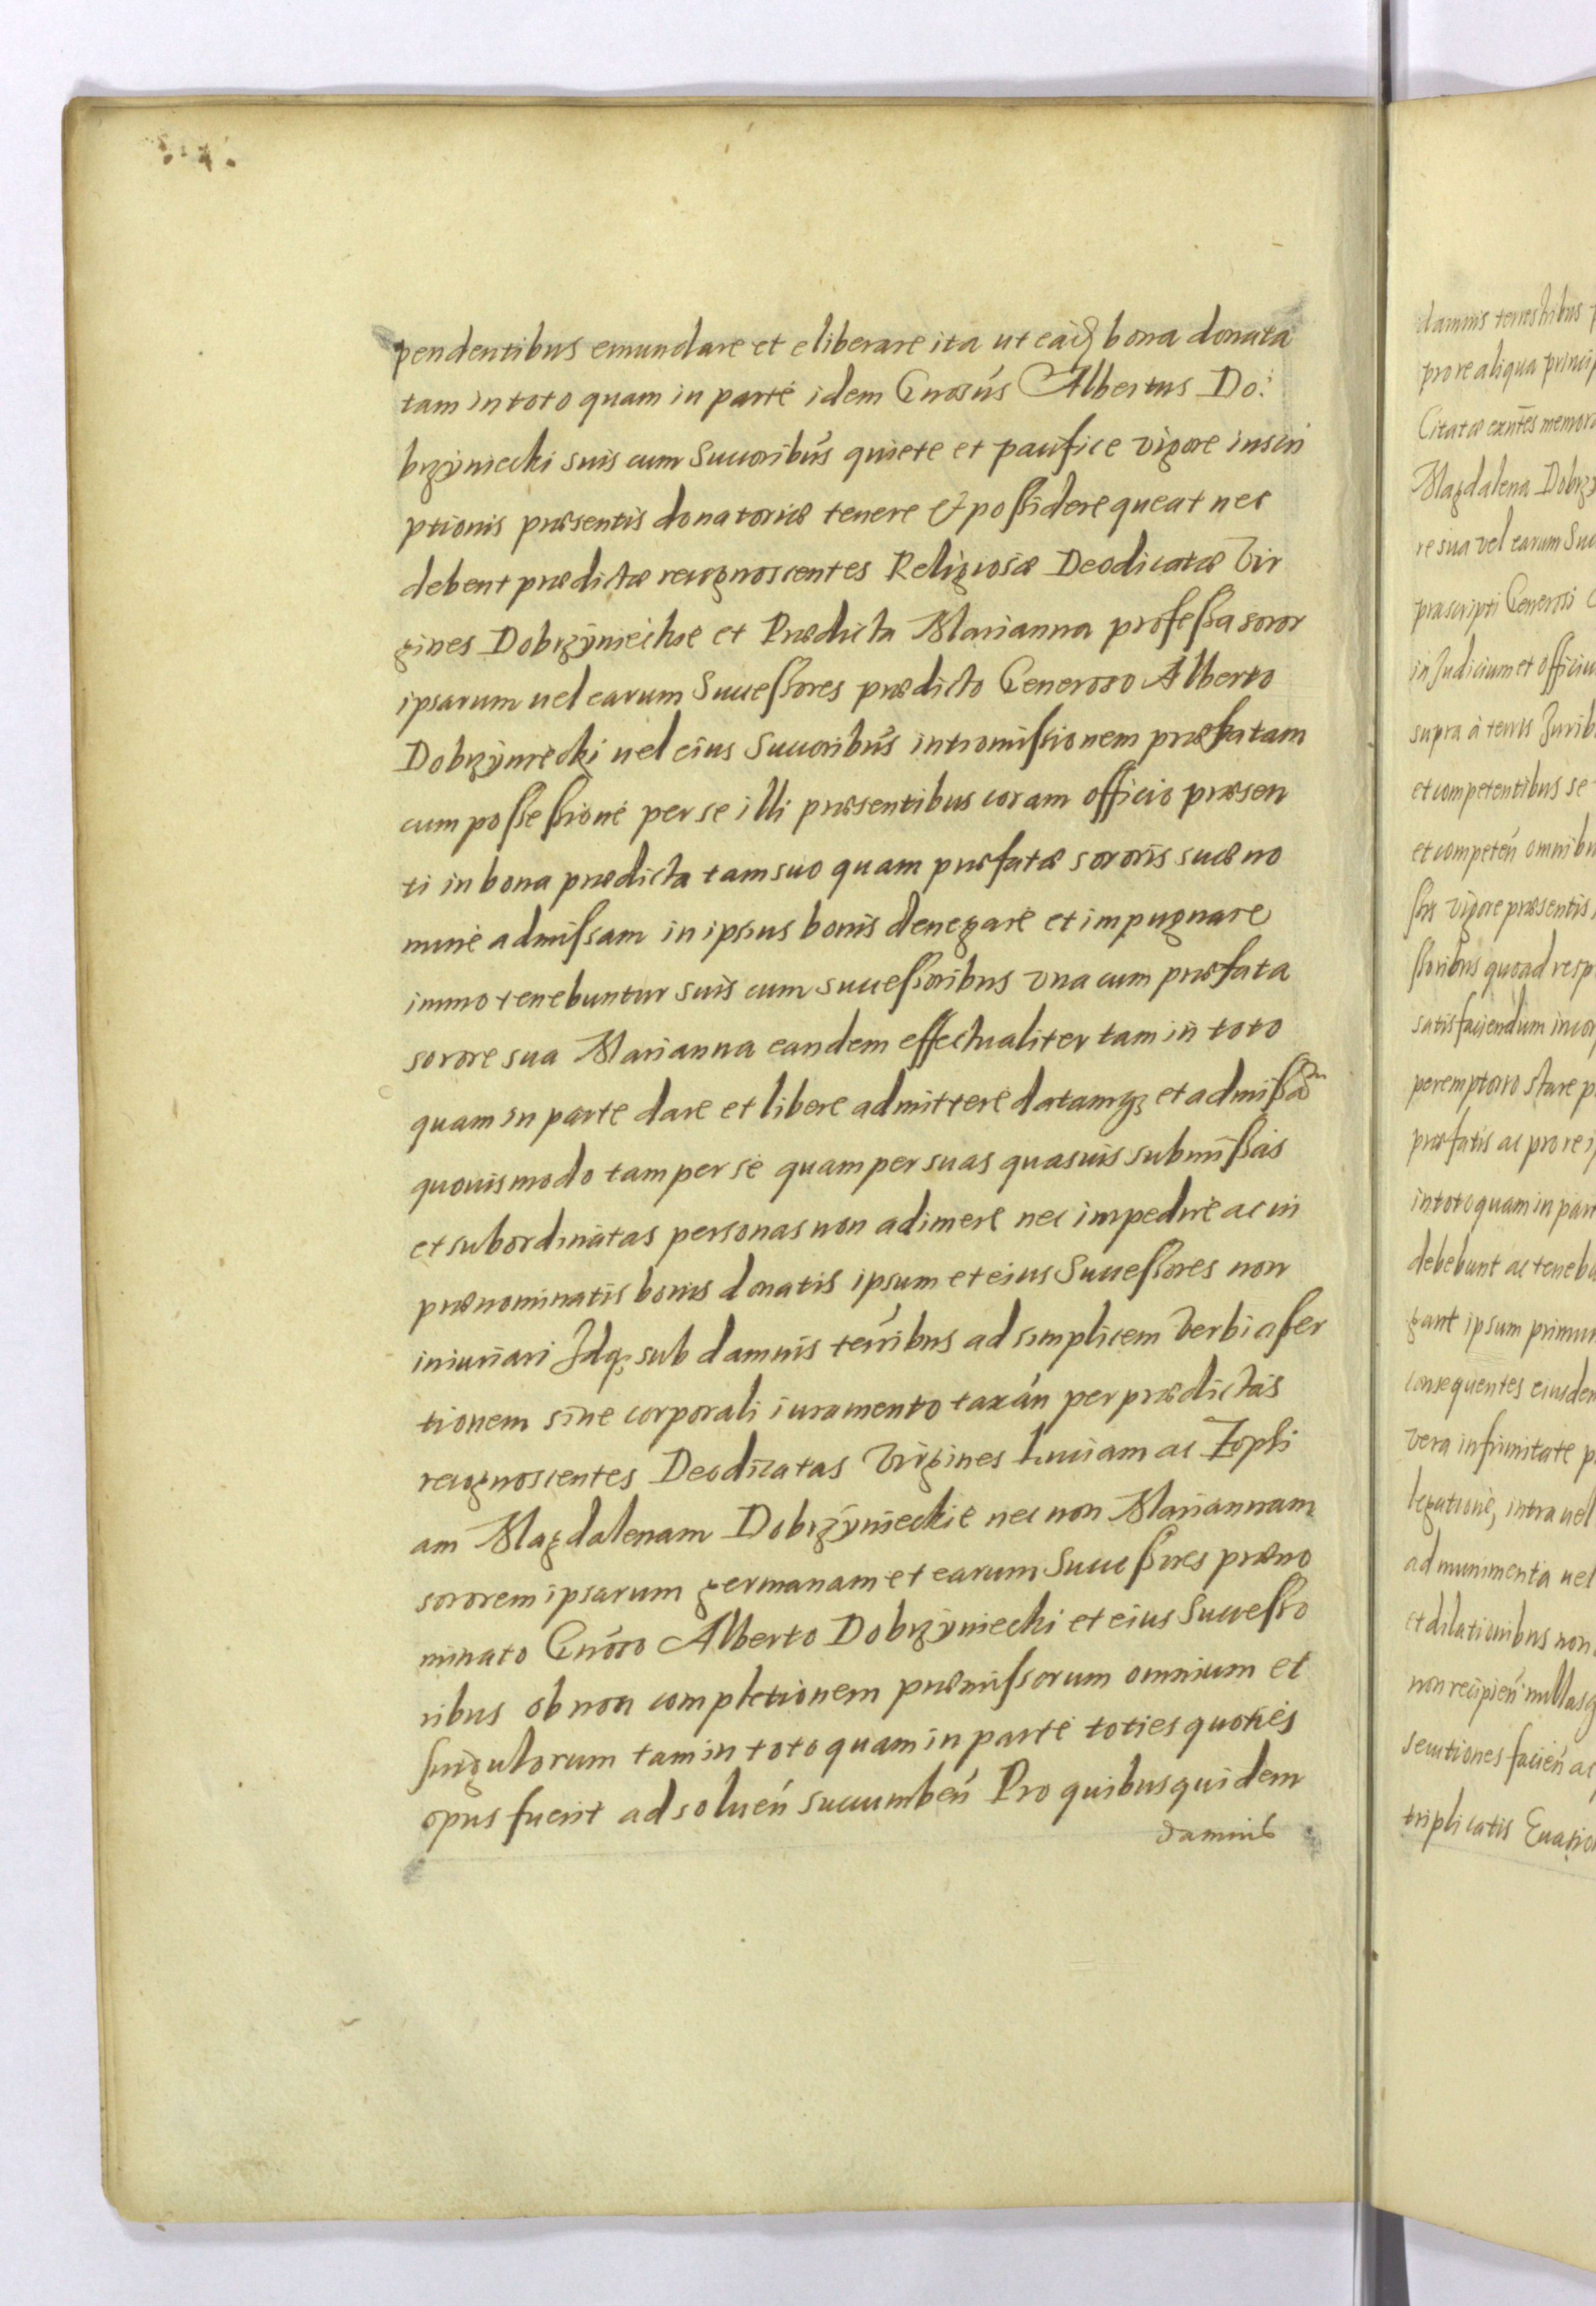 pendentibus emundare et eliberare ita ut eadē bona donata
tam in toto quam in parte idem Gnosus Albertus Do:
brzyniecki suis cum Succoribus quiete et pacifice vigore inscri
ptionis præsentis donatoriæ tenere et possidere queat nec
debent prædictæ recognoscentes Religiosæ Deodicatæ Vir
gines Dobrzynieckie et Prædicta Marianna professa soror
ipsarum uel earum Successores prædicto Generoso Alberto
Dobrzyniecki uel eius Succoribus intromissionem præfatam
cum possessione per se illi præsentibus coram officio præsen
ti in bona prædicta tam suo quam præfatæ sororis suæ no
mine admissam in ipsius bonis denegare et impugnare
immo tenebuntur suis cum successoribus vna cum præfata
sorore sua Marianna eandem effectualiter tam in toto
quam in parte dare et libere admittere datamq3 et admissam
quouismodo tam per se quam per suas quasuis submissas
et subordinatas personas non adimere nec impedire ac in
prænominatis bonis donatis ipsum et eius Successores non
iniuriari Idq3 sub damnis terribus ad simplicem Verbi asser
tionem sine corporali iuramento taxan per prædictas
recognoscentes Deodicatas Virgines Luciam ac Zophi
am Magdalenam Dobrzynieckie nec non Mariannam
sororem ipsarum germanam et earum Successores præno
minato Gnoso Alberto Dobrzyniecki et eius Successo
ribus ob non completionem præmissorum omnium et
singulorum tam in toto quam in parte toties quoties
opus fuerit ad soluen succumben Pro quibus quidem
damnis
damnis terrestribus
pro re aliqua princip
Citatæ exntes memora
Magdalena Dobrzy
re sua vel earum Suc
præscripti Generosi
in Judicium et officiu
supra à terris Jurib
et competentibus se
et competen omnibu
ssis vigore præsentis
ssoribus quoad resp
satisfaciendum incor
peremptorio stare p
præfatis ac pro re i
in toto quam in part
debebunt ac tenebu
gant ipsum primum
consequentes eiusdem
vera infirmitate p
legatione, intra uel
ad munimenta uel
et dilationibus non
non recipien nullasq
secutiones facien ac
triplicatis Euasion